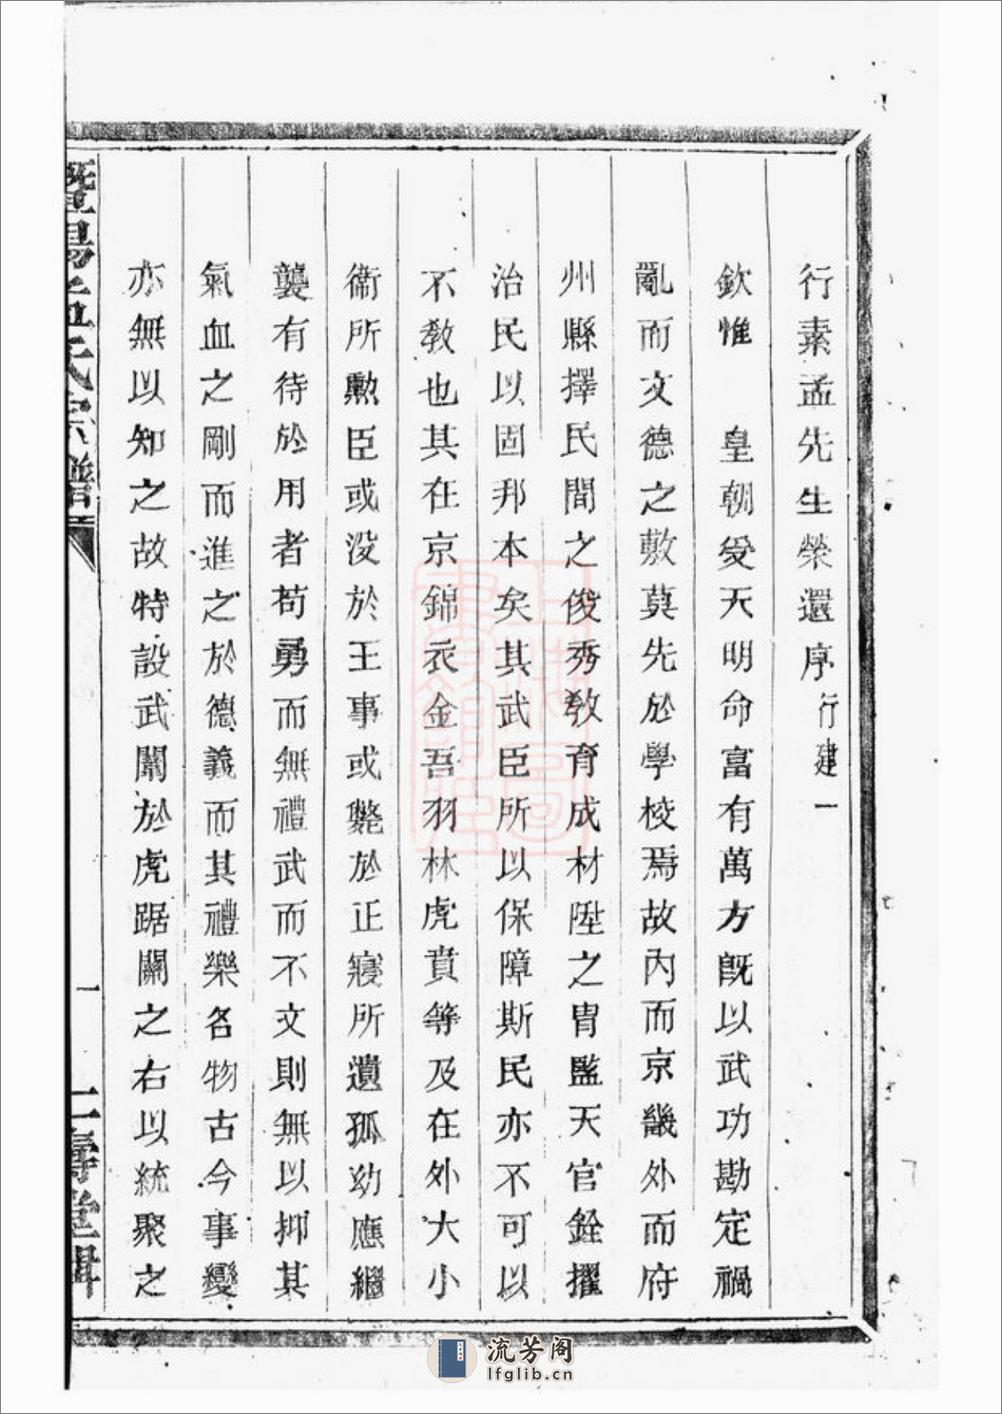 行素孟先生榮還序行建一
欽惟 皇朝受天明命富有萬方既以武功勘定禍
亂而文德之敷莫先於學校焉故內而京畿外而府
州縣擇民間之俊秀敎育成材陞之胄監天官銓擢
治民以固邦本矣其武臣所以保障斯民亦不可以
不敎也其在京錦衣金吾羽林虎賁等及在外大小
衛所勲臣或没於王事或斃於正寢所遺孤幼應繼
襲有待於用者苟勇而無禮武而不文則無以抑其
氣血之剛而進之於德義而其禮樂名物古今事變
亦無以知之故特設武闈於虎踞關之右以統聚之
暨陽孟氏宗譜
一
仁壽堂輯
流芳阁
lfglib.cn